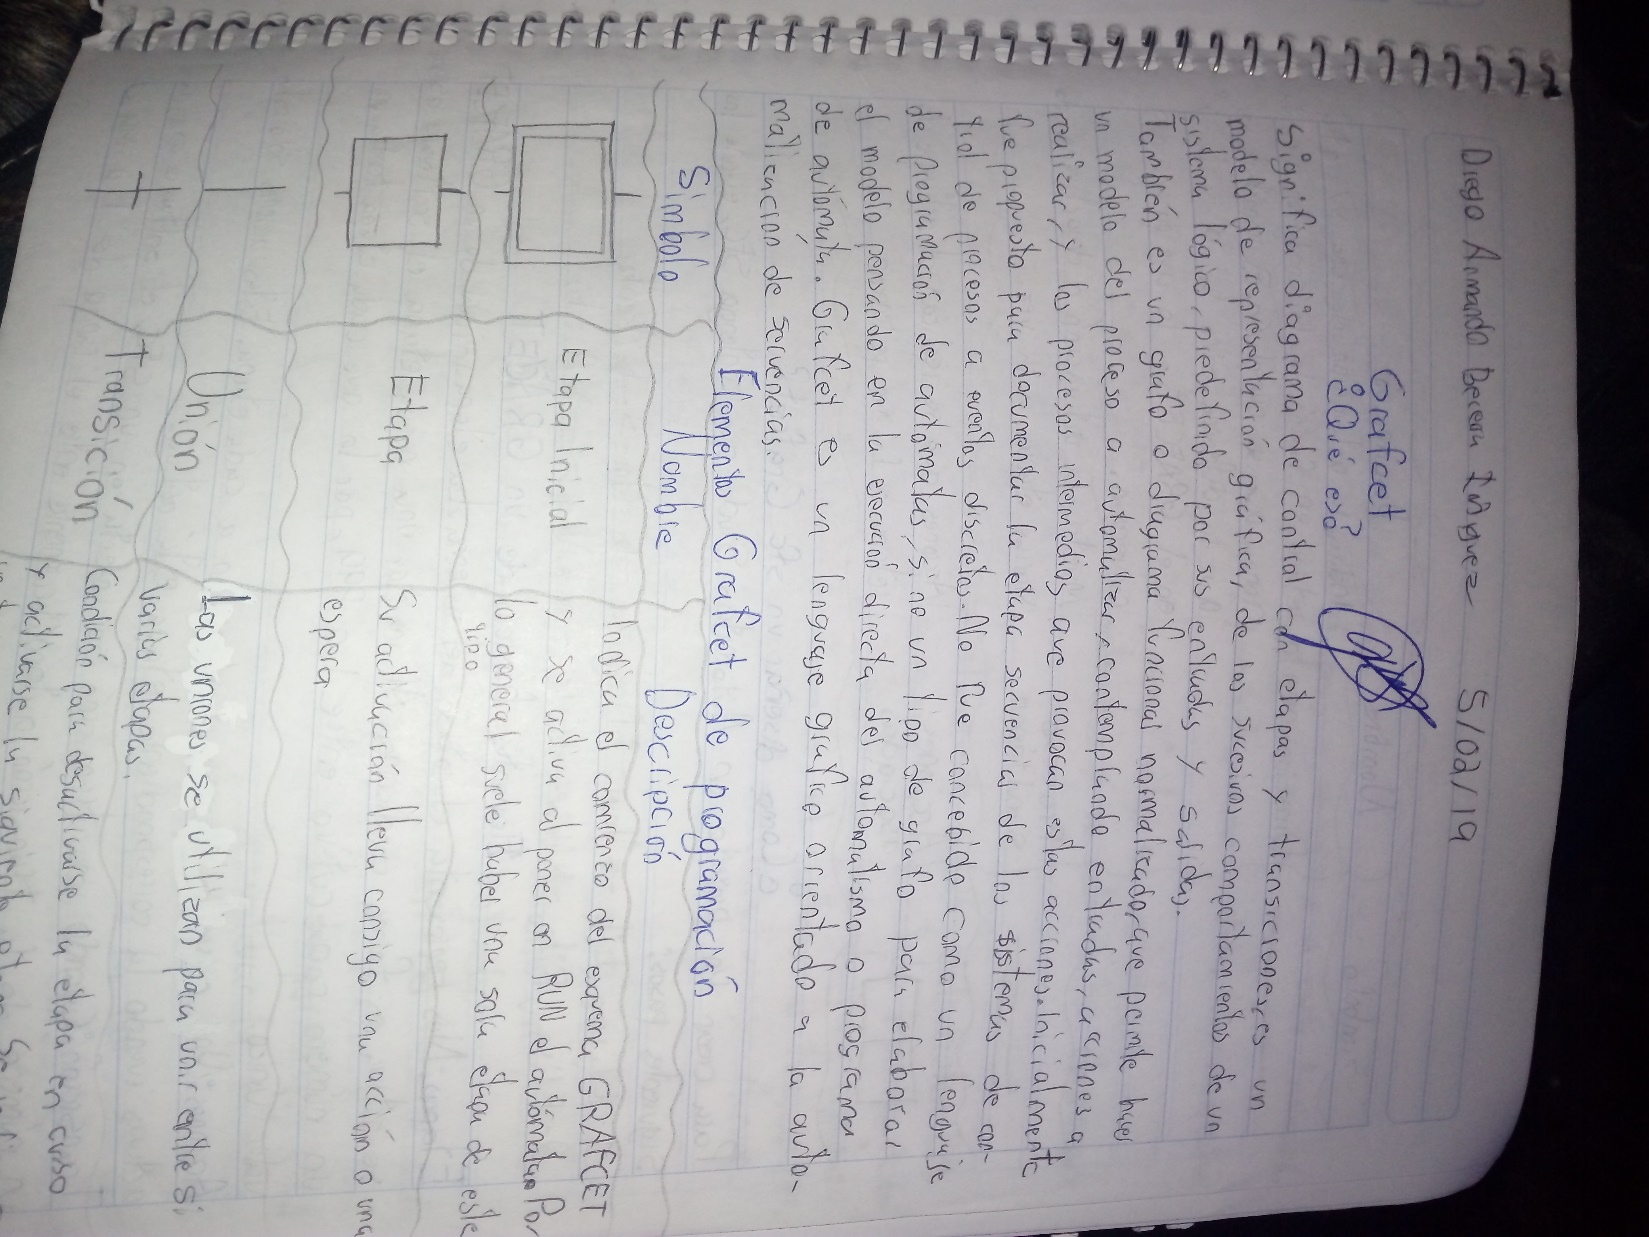 Diego Armando Becerra Iñiguez 5/02/19
Grafcet
¿Qué es?
Significa diagrama de control con etapas y transiciones, es un
modelo de representación gráfica, de los sucesivos comportamientos de un
sistema lógico, predefinido por sus entradas y salidas.
También es un grafo o diagrama funcional normalizado, que permite hacer
un modelo del proceso a automatizar, contemplando entradas, acciones a
realizar, y los procesos intermedios que provocan estas acciones. Inicialmente
fue propuesto para documentar la etapa secuencial de los sistemas de con-
trol de procesos a eventos discretos. No fue concebido como un lenguaje
de programación de autómatas, sino un tipo de grafo para elaborar
el modelo pensando en la ejecución directa del automatismo o programa
de autómata. Grafcet es un lenguaje grafico orientado a la auto-
matización de secuencias.
Elementos Grafcet de programación
Símbolo Nombre Descripción
Etapa Inicial Indica el comienzo del esquema GRAFCET
y se activa al poner en RUN el autómata. Por
lo general suele haber una sola etapa de este
tipo
Etapa Su activación lleva consigo una acción o una
espera
Unión Las uniones se utilizan para unir entre si
varias etapas.
Transición Condición para desactivarse la etapa en curso
y activarse la siguiente etapa